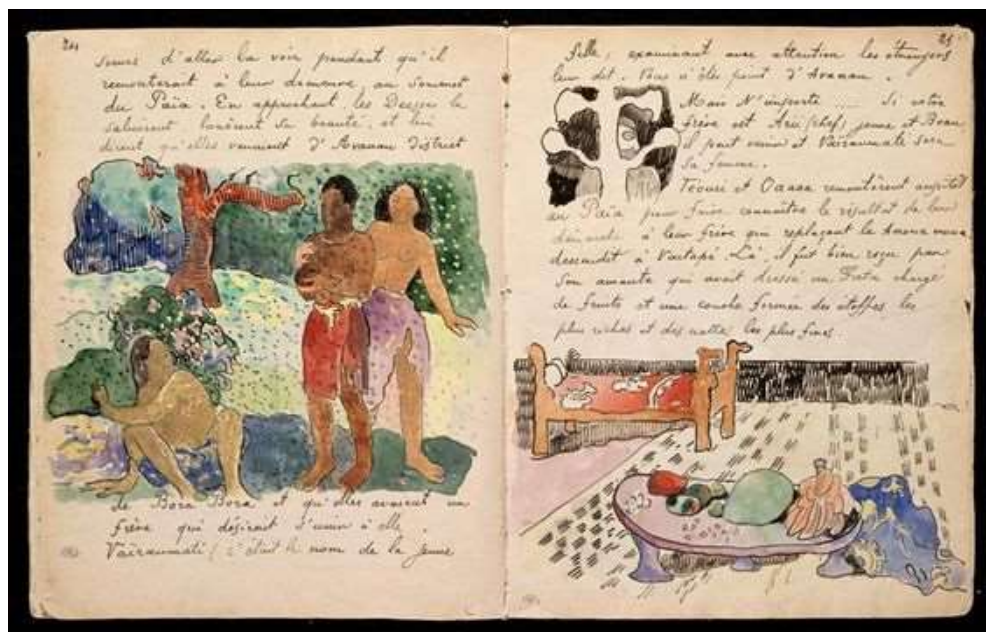 24
sœurs d'aller la voir pendant qu'il
remonterait à leur demeure, au sommet
du Païa. En approchant, les Déesses la
saluèrent, louèrent sa beauté, et lui
dirent qu'elles venaient d'Avanau District
de Bora Bora et qu'elles avaient un
frère qui désirait s'unir à elle.
Vaïraumati (c'était le nom de la jeune
25
fille, examinant avec attention les étrangers
leur dit. Vous n'êtes point d'Avanau.
Mais N'importe .... Si votre
frère est Arii (chef) jeune et Beau,
il peut venir et Vaïraumati sera
sa femme.
Téouri et Oaaoa remontèrent aussitôt
au Païa pour faire connaître le résultat de leur
démarche à leur frère qui replaçant le
descendit à Vaitapé. Là, il fut bien reçu par
son amante qui avait dressé un Fata chargé
de fruits et une couche formée des étoffes les
plus riches et des nattes les plus fines.